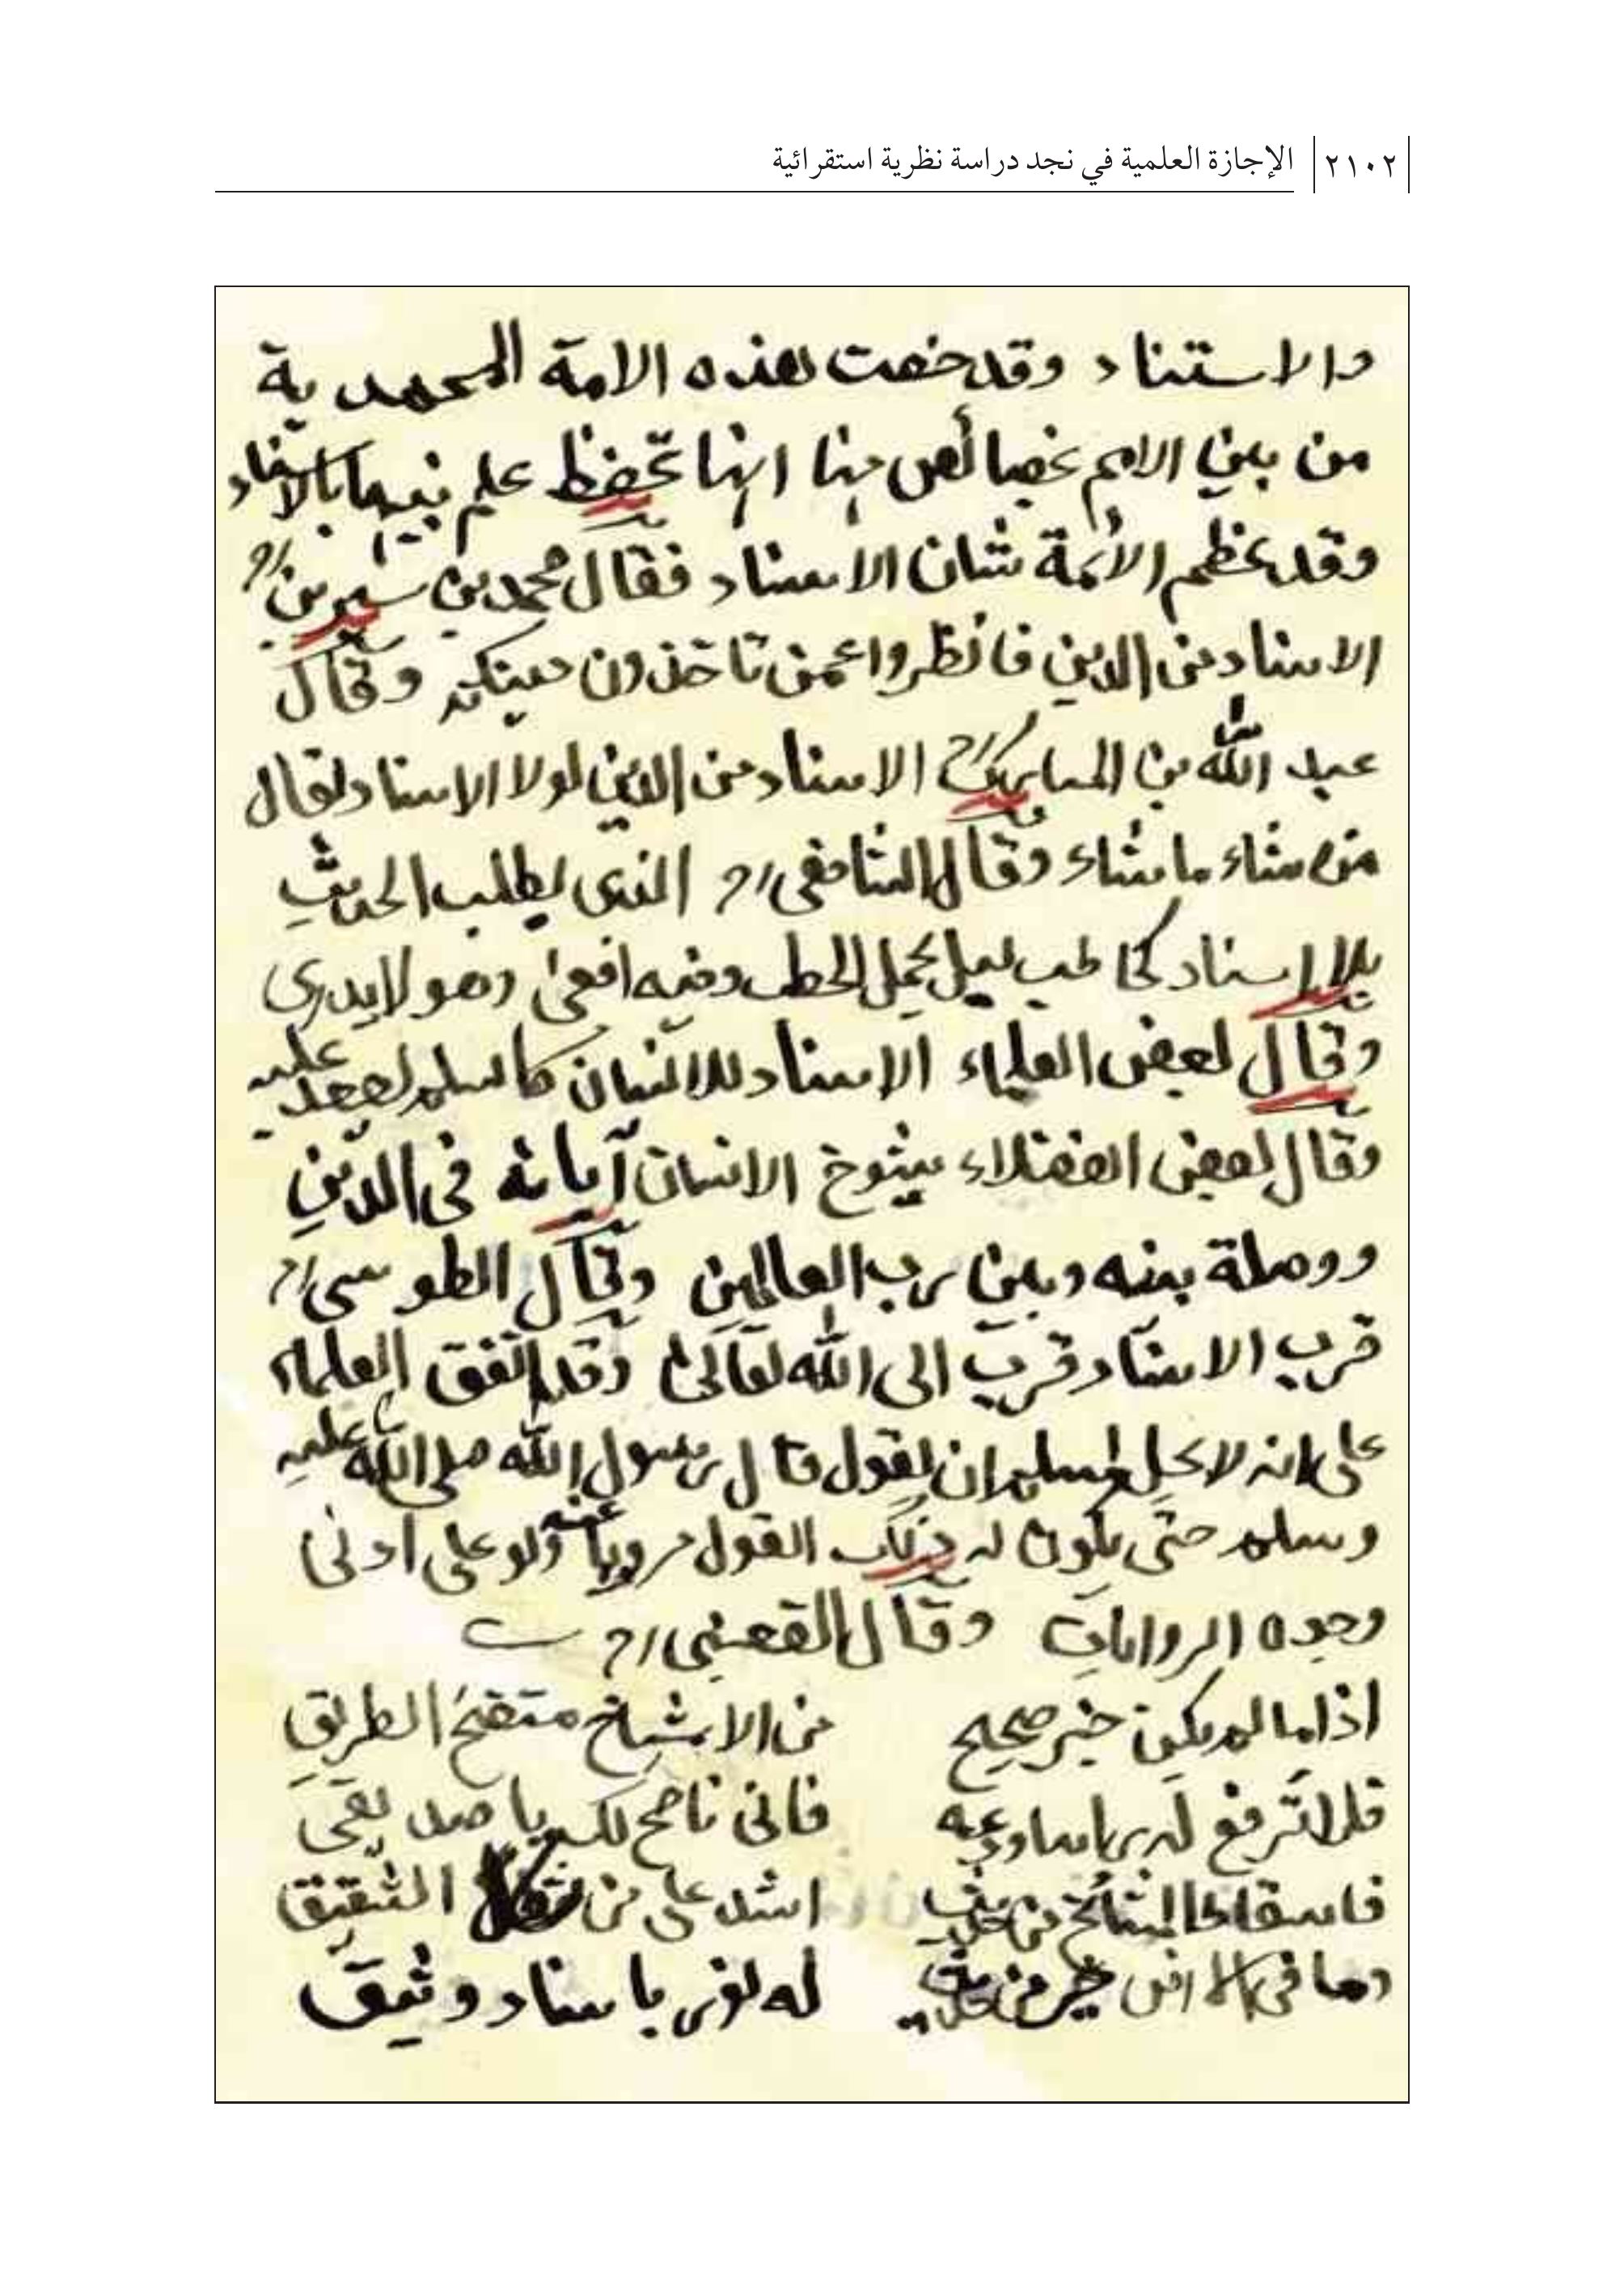 ٢١٠٢ الإجازة العلمية في نجد دراسة نظرية استقرائية
والاستناد وقد خصت هذه الامة المحمدية
من بين الامم بخصائص منها انها تحفظ علم نبيها بالاسناد
وقد عظم الأئمة شان الاسناد فقال محمد بن سيرين رح
الاسناد من الدين فانظروا عمن تاخذون دينكم وقال
عبد الله بن المبارك رح الاسناد من الدين لولا الاسناد لقال
من شاء ما شاء وقال الشافعي رح الذى يطلب الحديث
بلا اسناد كحاطب ليل يحمل الحطب وفيه افعى وهو لا يدرى
وقال بعض العلماء الاسناد للانسان كالسلم يصعد عليه
وقال بعض الفضلاء شيوخ الانسان آبائه فى الدين
ووصلة بينه وبين رب العالمين وقال الطوسى رح
قرب الاسناد قرب الى الله تعالى وقد اتفق العلماء
على انه لا يحل لمسلم ان يقول قال رسول الله صلى الله عليه
وسلم حتى يكون له ذلك القول مرويا عنه ولو على ادنى
وجوه الروايات وقال القعنبى رح
اذا ما لم يكن خبر صحيح من الاشياخ متضح الطريق
فلا ترفع له راسا وعه فانى ناصح لك يا صديقى
فاسقاط المشائخ من حديث اشد على من الشقيق
وما فى الارض خير من حديث له نور باسناد وثيق